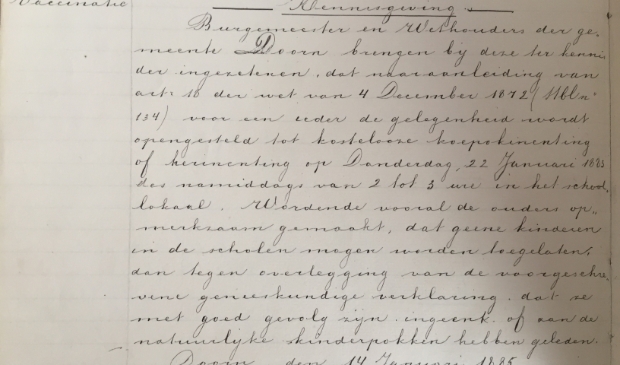 Vaccinatie
Kennisgeving.
Burgemeester en Wethouders der ge-
meente Doorn brengen bij deze ter kennis
der ingezetenen, dat naar aanleiding van
art: 18 der wet van 4 December 1872 (Stbl. no
134) voor een ieder de gelegenheid wordt
opengesteld tot kostelooze koepokinenting
of herinenting op Donderdag, 22 Januari 1885
des namiddags van 2 tot 3 ure in het school-
lokaal. Wordende vooral de ouders op-
merkzaam gemaakt, dat geene kinderen
in de scholen mogen worden toegelaten,
dan tegen overlegging van de voorgeschre-
vene geneeskundige verklaring, dat ze
met goed gevolg zijn ingeënt of aan de
natuurlijke kinderpokken hebben geleden.
Doorn den 14 Januari 1885